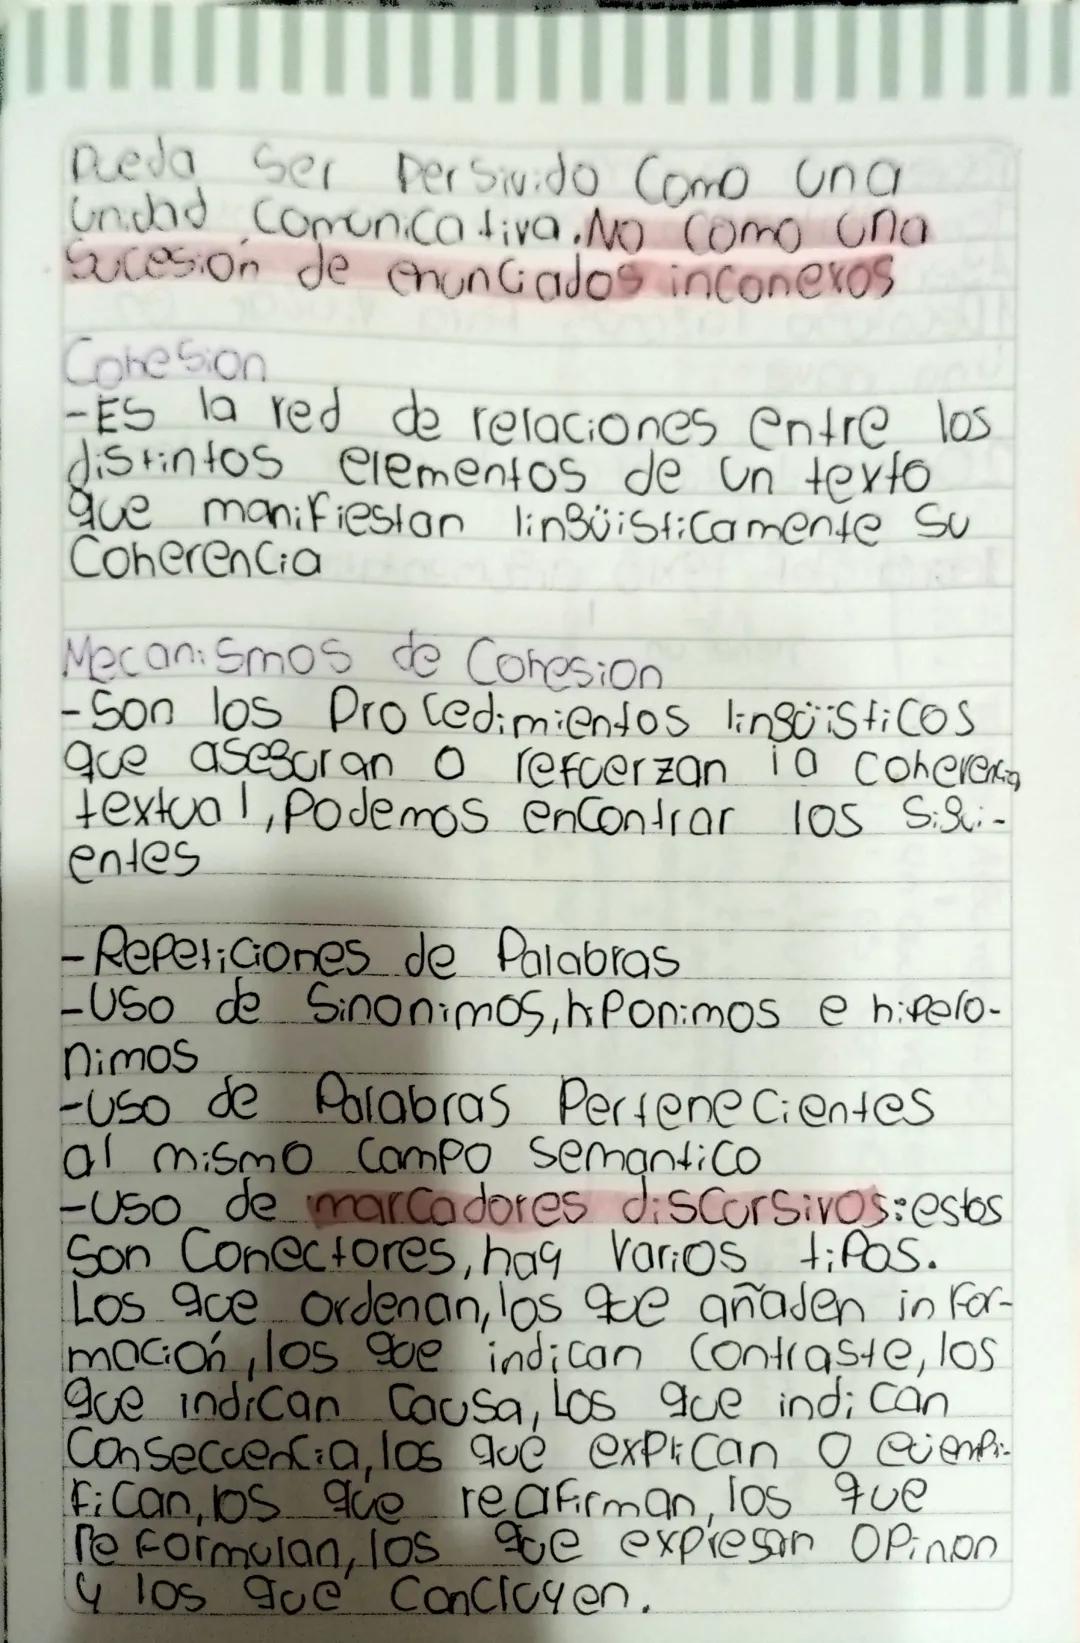 Pueda ser persivido como una
unidad comunicativa. No como una
sucesión de enunciados inconexos
Cohesion
-Es la red de relaciones entre los
distintos elementos de un texto
que manifiestan lingüisticamente su
Coherencia
Mecanismos de Cohesion
-Son los Procedimientos lingüisticos
que aseguran o refuerzan la coherencia
textual, Podemos encontrar los sigui-
entes
-Repeticiones de Palabras
-Uso de Sinonimos, hiponimos e hipero-
nimos
-uso de Palabras Pertenecientes
al mismo Campo semantico
-Uso de marcadores discursivos: estos
Son Conectores, hay varios tipos.
Los que ordenan, los que añaden infor-
mación, los que indican contraste, los
que indican causa, Los que indican
Consecuencia, los que explican o ejempli-
fican, los que reafirman, los que
reformulan, los que expresan opinon
y los que concluyen.